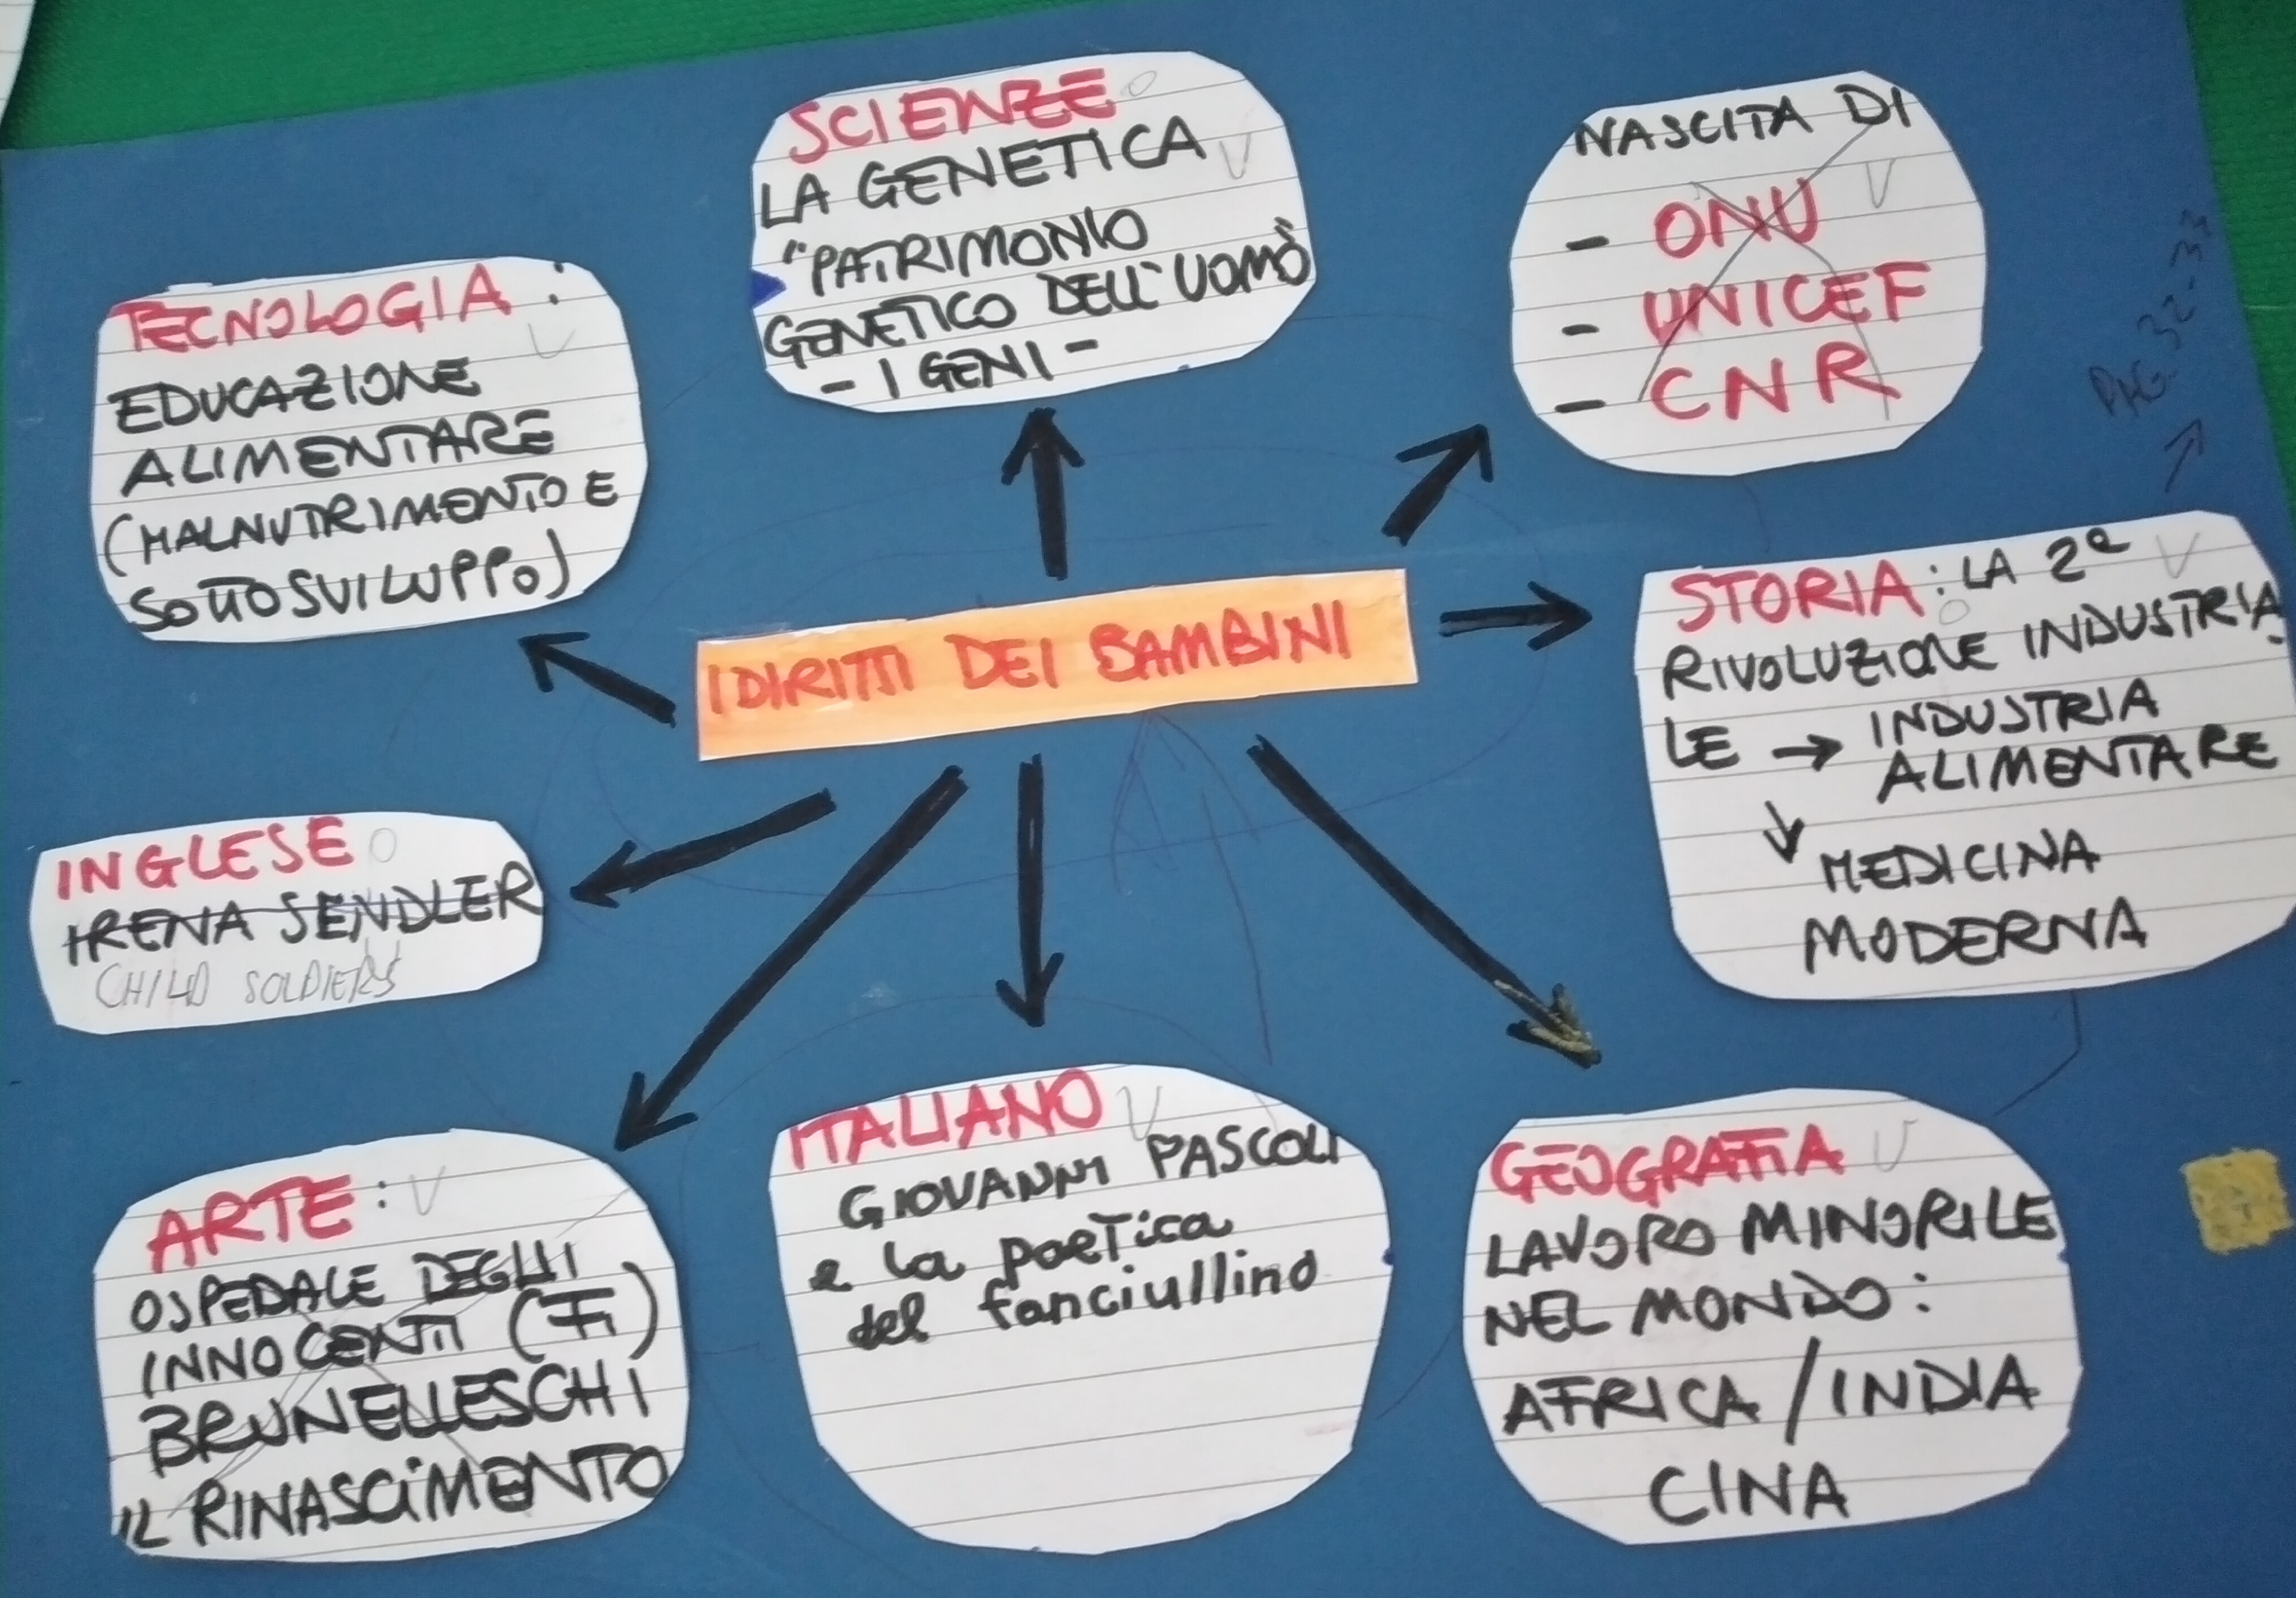 SCIENZE
LA GENETICA
"PATRIMONIO
GENETICO DELL'UOMO"
- I GENI -
NASCITA DI
- ONU
- UNICEF
- CNR
PAG. 32-33
TECNOLOGIA:
EDUCAZIONE
ALIMENTARE
(MALNUTRIMENTO E
SOTTOSVILUPPO)
I DIRITTI DEI BAMBINI
STORIA: LA 2ª
RIVOLUZIONE INDUSTRIA
LE → INDUSTRIA
ALIMENTARE
↓ MEDICINA
MODERNA
INGLESE
IRENA SENDLER
CHILD SOLDIERS
ARTE:
OSPEDALE DEGLI
INNOCENTI (FI)
BRUNELLESCHI
IL RINASCIMENTO
ITALIANO
GIOVANNI PASCOLI
e la poetica
del fanciullino
GEOGRAFIA
LAVORO MINORILE
NEL MONDO:
AFRICA / INDIA
CINA